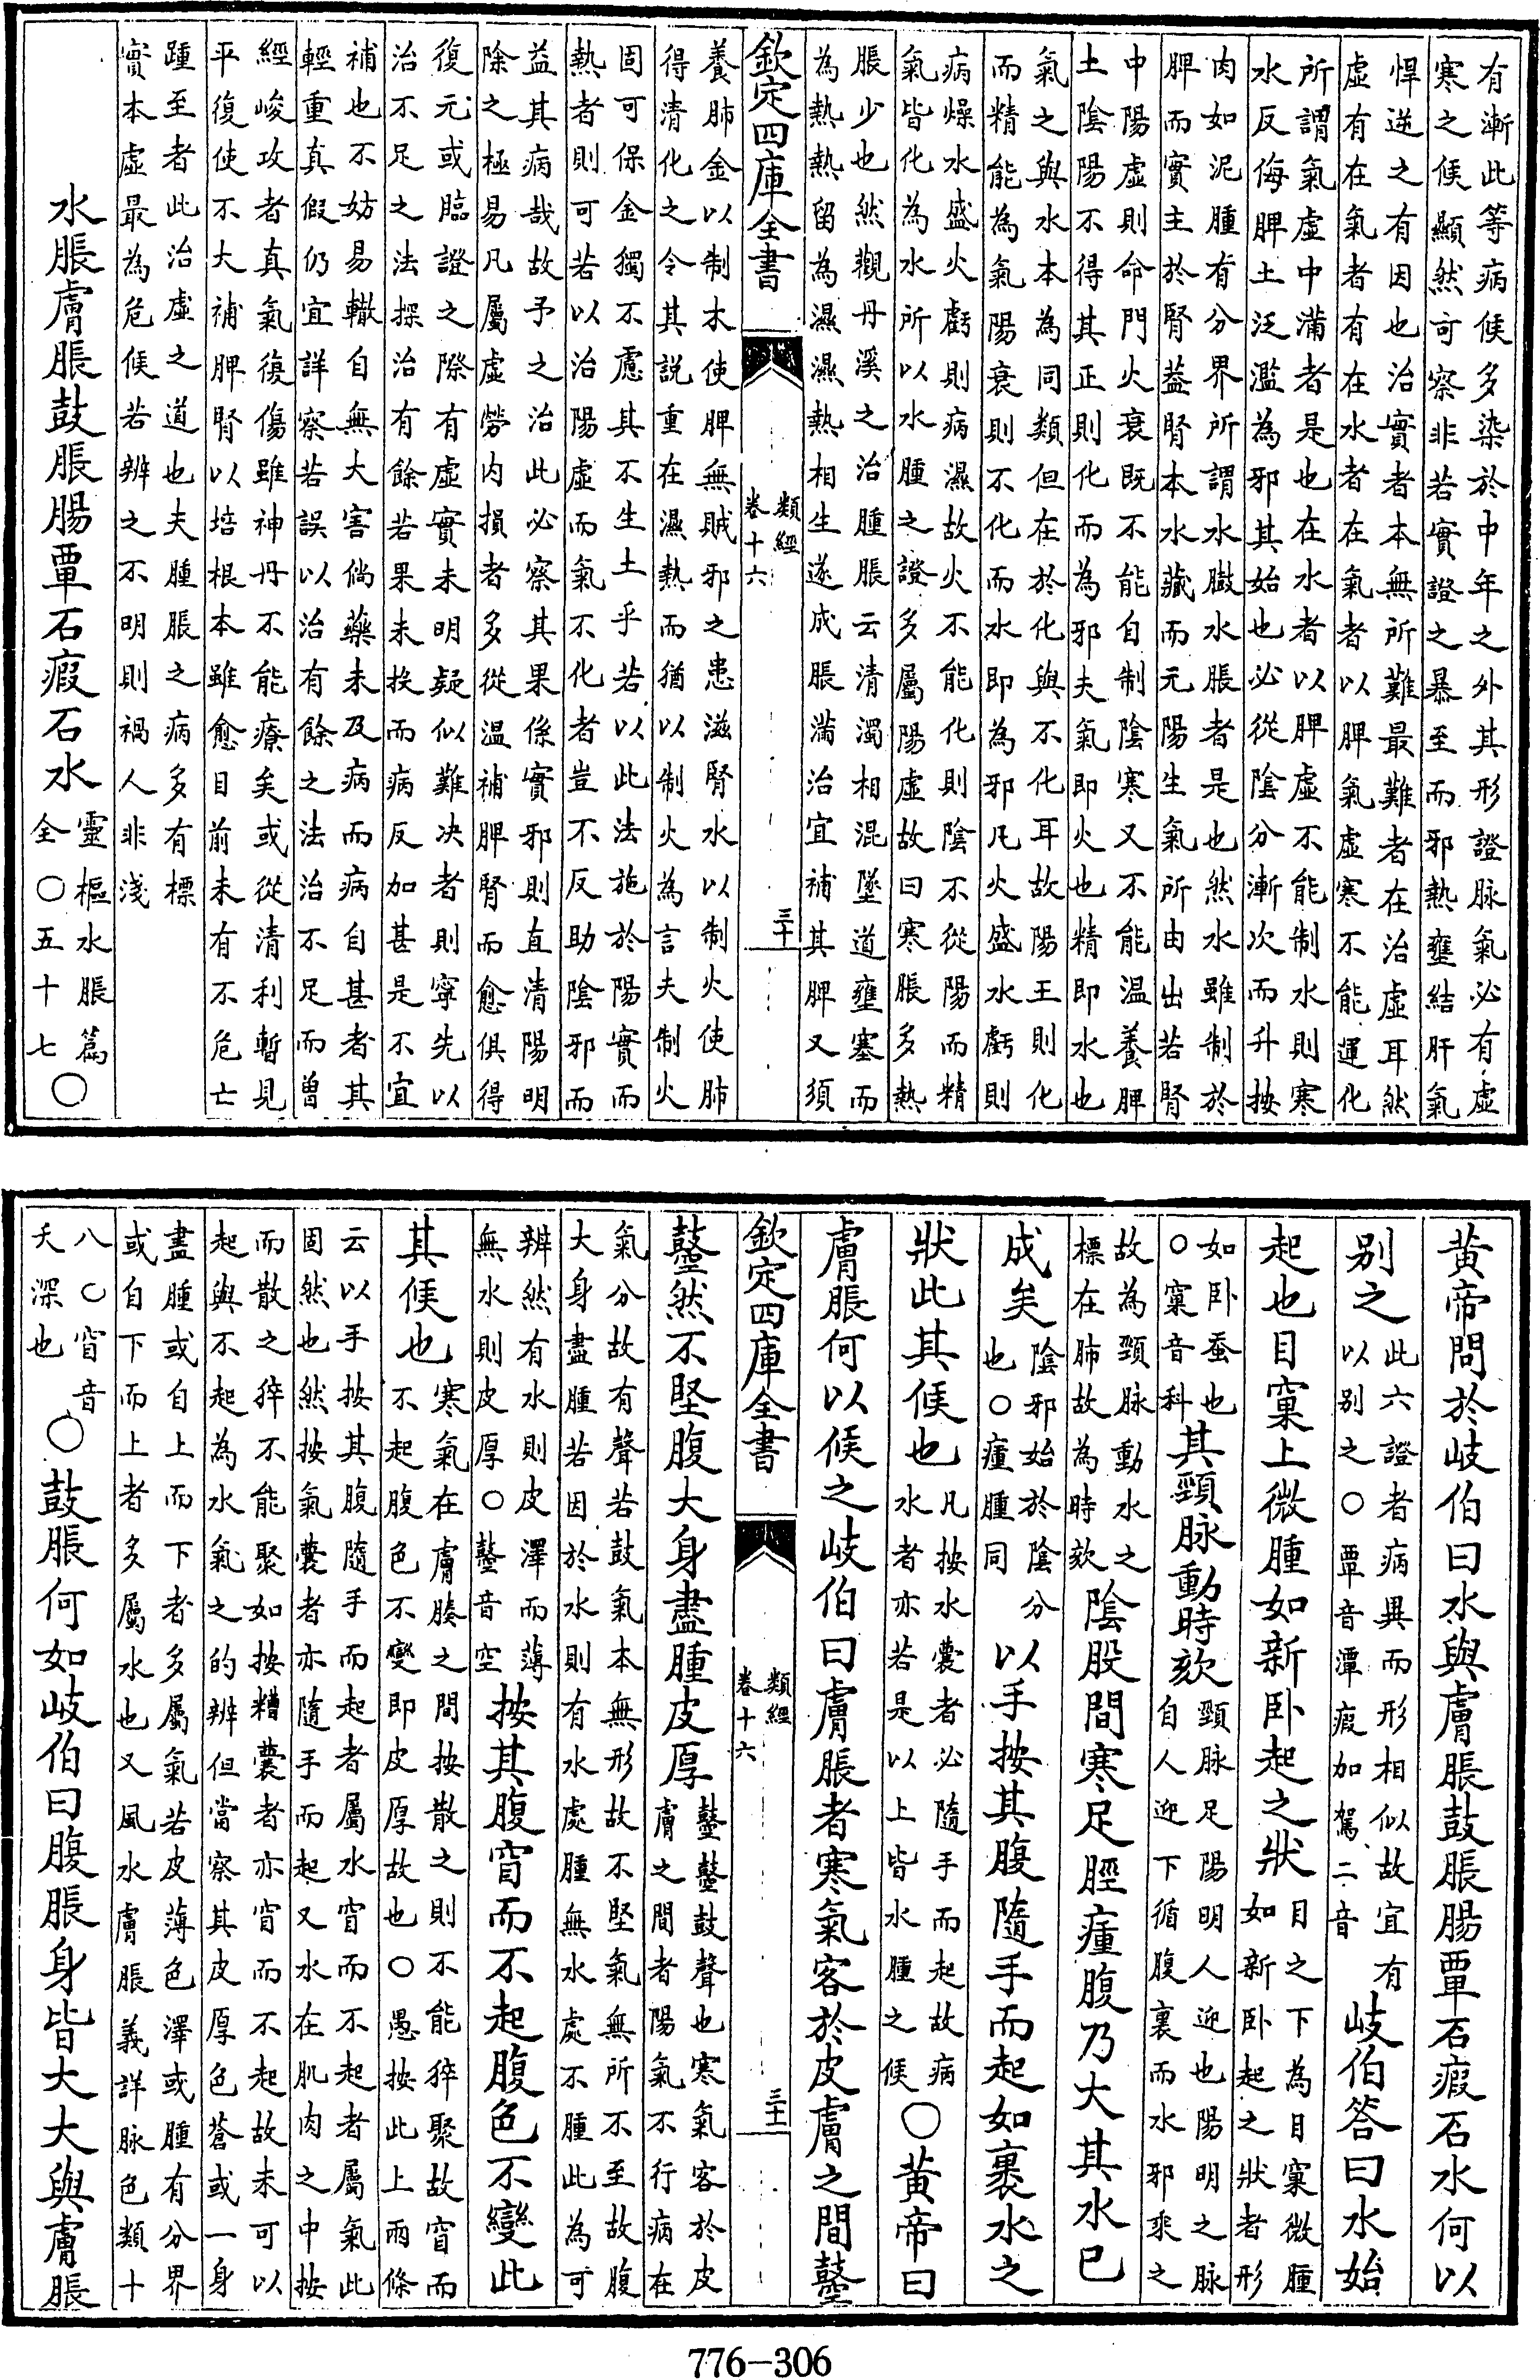 有漸此等病候多染於中年之外其形證脉氣必有虛
寒之候顯然可察非若實證之暴至而邪熱壅結肝氣
悍逆之有因也治實者本無所難最難者在治虛耳然
虛有在氣者有在水者在氣者以脾氣虛寒不能運化
所謂氣虛中滿者是也在水者以脾虛不能制水則寒
水反侮脾土泛濫為邪其始也必從陰分漸次而升按
肉如泥腫有分界所謂水臌水脹者是也然水雖制於
脾而實主於腎葢腎本水藏而元陽生氣所由出若腎
中陽虛則命門火衰既不能自制陰寒又不能溫養脾
土陰陽不得其正則化而為邪夫氣即火也精即水也
氣之與水本為同類但在於化與不化耳故陽王則化
而精能為氣陽衰則不化而水即為邪凡火盛水虧則
病燥水盛火虧則病濕故火不能化則陰不從陽而精
氣皆化為水所以水腫之證多屬陽虛故曰寒脹多熱
脹少也然觀丹溪之治腫脹云清濁相混墜道壅塞而
為熱熱留為濕濕熱相生遂成脹滿治宜補其脾又須
欽定四庫全書
類經
卷十六
三十
養肺金以制木使脾無賊邪之患滋腎水以制火使肺
得清化之令其説重在濕熱而猶以制火為言夫制火
固可保金獨不慮其不生土乎若以此法施於陽實而
熱者則可若以治陽虛而氣不化者豈不反助陰邪而
益其病哉故予之治此必察其果係實邪則直清陽明
除之極易凡屬虛勞内損者多從温補脾腎而愈俱得
復元或臨證之際有虛實未明疑似難決者則寧先以
治不足之法探治有餘若果未投而病反加甚是不宜
補也不妨易轍自無大害倘藥未及病而病自甚者其
輕重真假仍宜詳察若誤以治有餘之法治不足而曾
經峻攻者真氣復傷雖神丹不能療矣或從清利暫見
平復使不大補脾腎以培根本雖愈目前未有不危亡
踵至者此治虛之道也夫腫脹之病多有標
實本虛最為危候若辨之不明則禍人非淺
水脹膚脹鼓脹腸覃石瘕石水
靈樞水脹篇
全○五十七○
黄帝問於岐伯曰水與膚脹鼓脹腸覃石瘕石水何以
别之
此六證者病異而形相似故宜有
以别之○覃音潭瘕加駕二音
岐伯答曰水始
起也目窠上微腫如新卧起之狀
目之下為目窠微腫
如新卧起之狀者形
如卧蚕也
○窠音科
其頸脉動時欬
頸脉足陽明人迎也陽明之脉
自人迎下循腹裏而水邪乘之
故為頸脉動水之
標在肺故為時欬
陰股間寒足脛瘇腹乃大其水已
成矣
陰邪始於陰分
也○瘇腫同
以手按其腹隨手而起如裹水之
狀此其候也
凡按水囊者必隨手而起故病
水者亦若是以上皆水腫之候
○黄帝曰
膚脹何以候之岐伯曰膚脹者寒氣客於皮膚之間鼞
欽定四庫全書
類經
卷十六
三十一
鼞然不堅腹大身盡腫皮厚
鼞鼞鼓聲也寒氣客於皮
膚之間者陽氣不行病在
氣分故有聲若鼓氣本無形故不堅氣無所不至故腹
大身盡腫若因於水則有水處腫無水處不腫此為可
辨然有水則皮澤而薄
無水則皮厚○鼞音空
按其腹窅而不起腹色不變此
其候也
寒氣在膚腠之間按散之則不能猝聚故窅而
不起腹色不變即皮厚故也○愚按此上兩條
云以手按其腹隨手而起者屬水窅而不起者屬氣此
固然也然按氣囊者亦隨手而起又水在肌肉之中按
而散之猝不能聚如按糟囊者亦窅而不起故未可以
起與不起為水氣之的辨但當察其皮厚色蒼或一身
盡腫或自上而下者多屬氣若皮薄色澤或腫有分界
或自下而上者多屬水也又風水膚脹義詳脉色類十
八○窅音
夭深也
○鼓脹何如岐伯曰腹脹身皆大大與膚脹
776-306